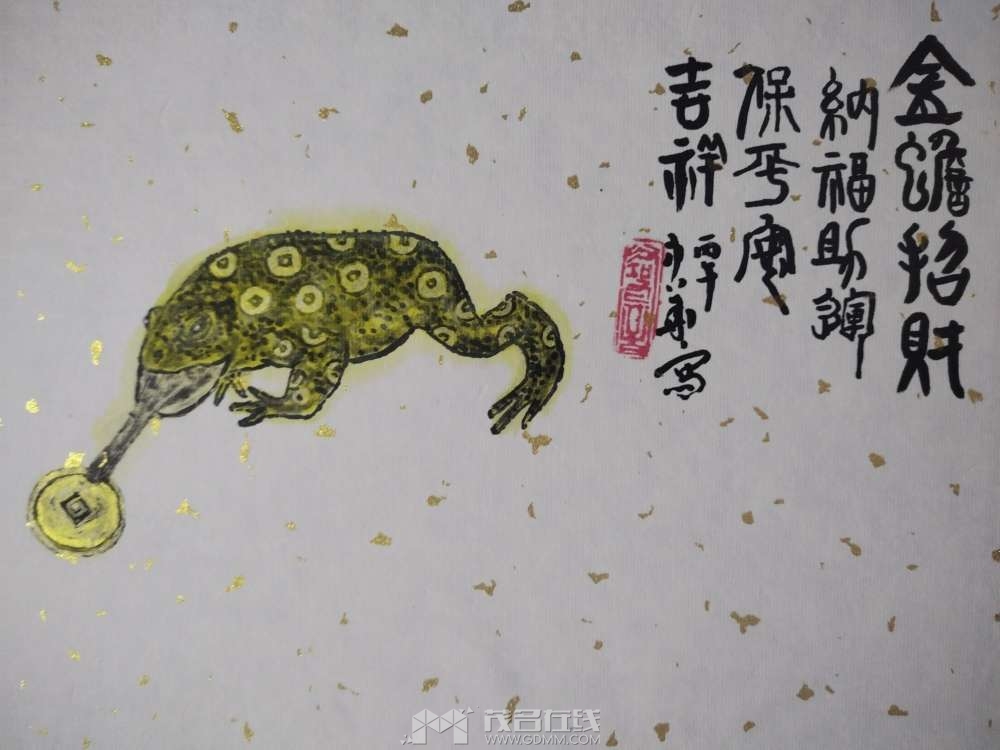 金蟾招財
納福助運
保平安
吉祥
写
茂名在线
WWW.GDMM.COM